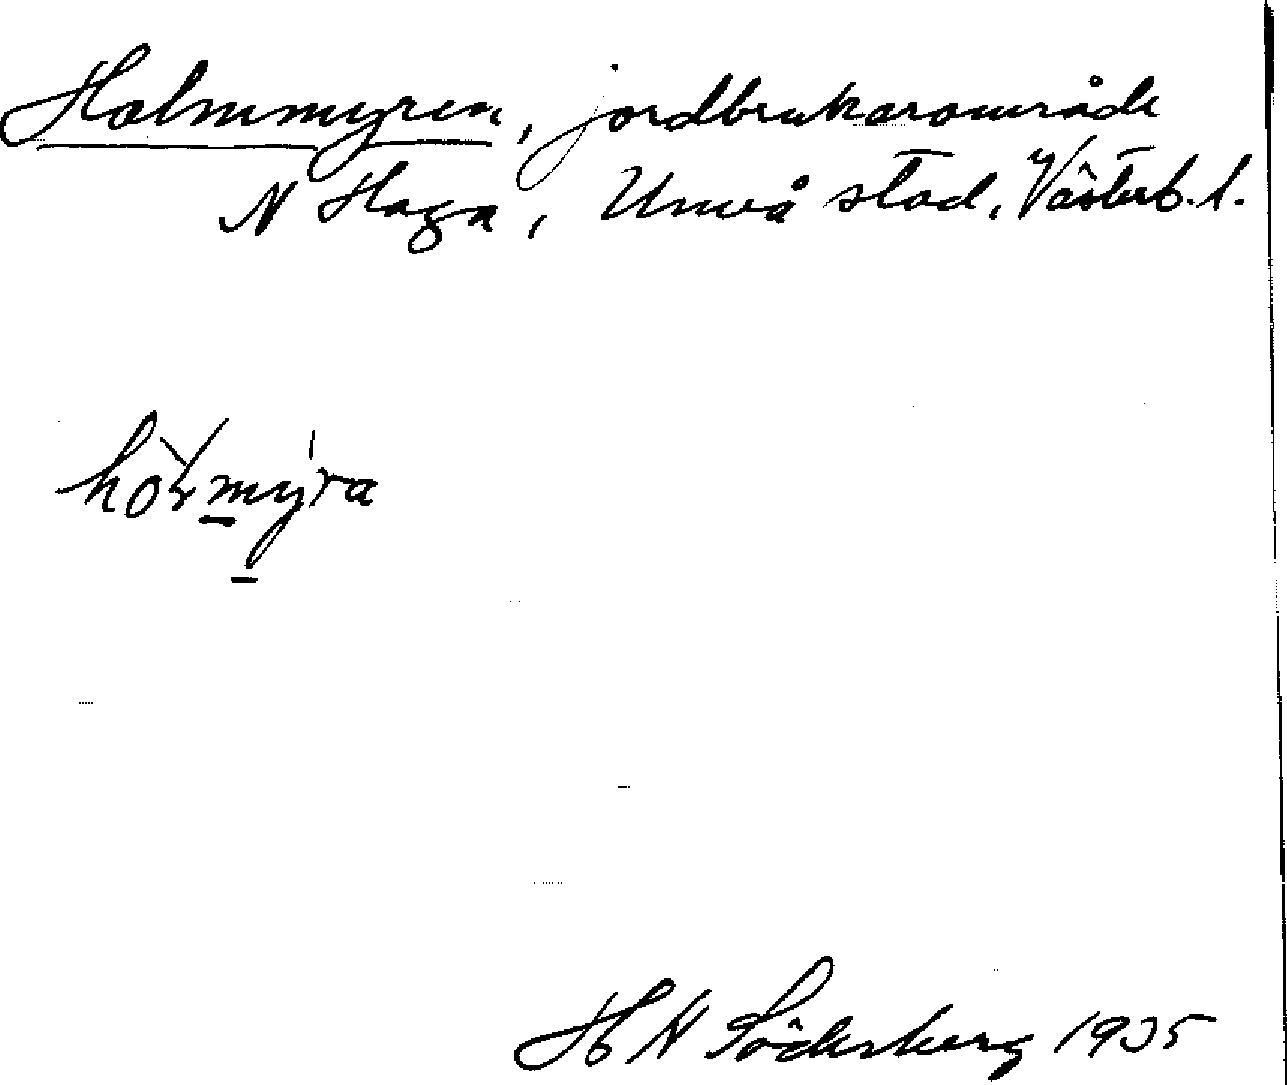 Holmmyren, jordbrukarområde
N Haga, Umeå stad, Västerb. l.
H N Söderberg 1935